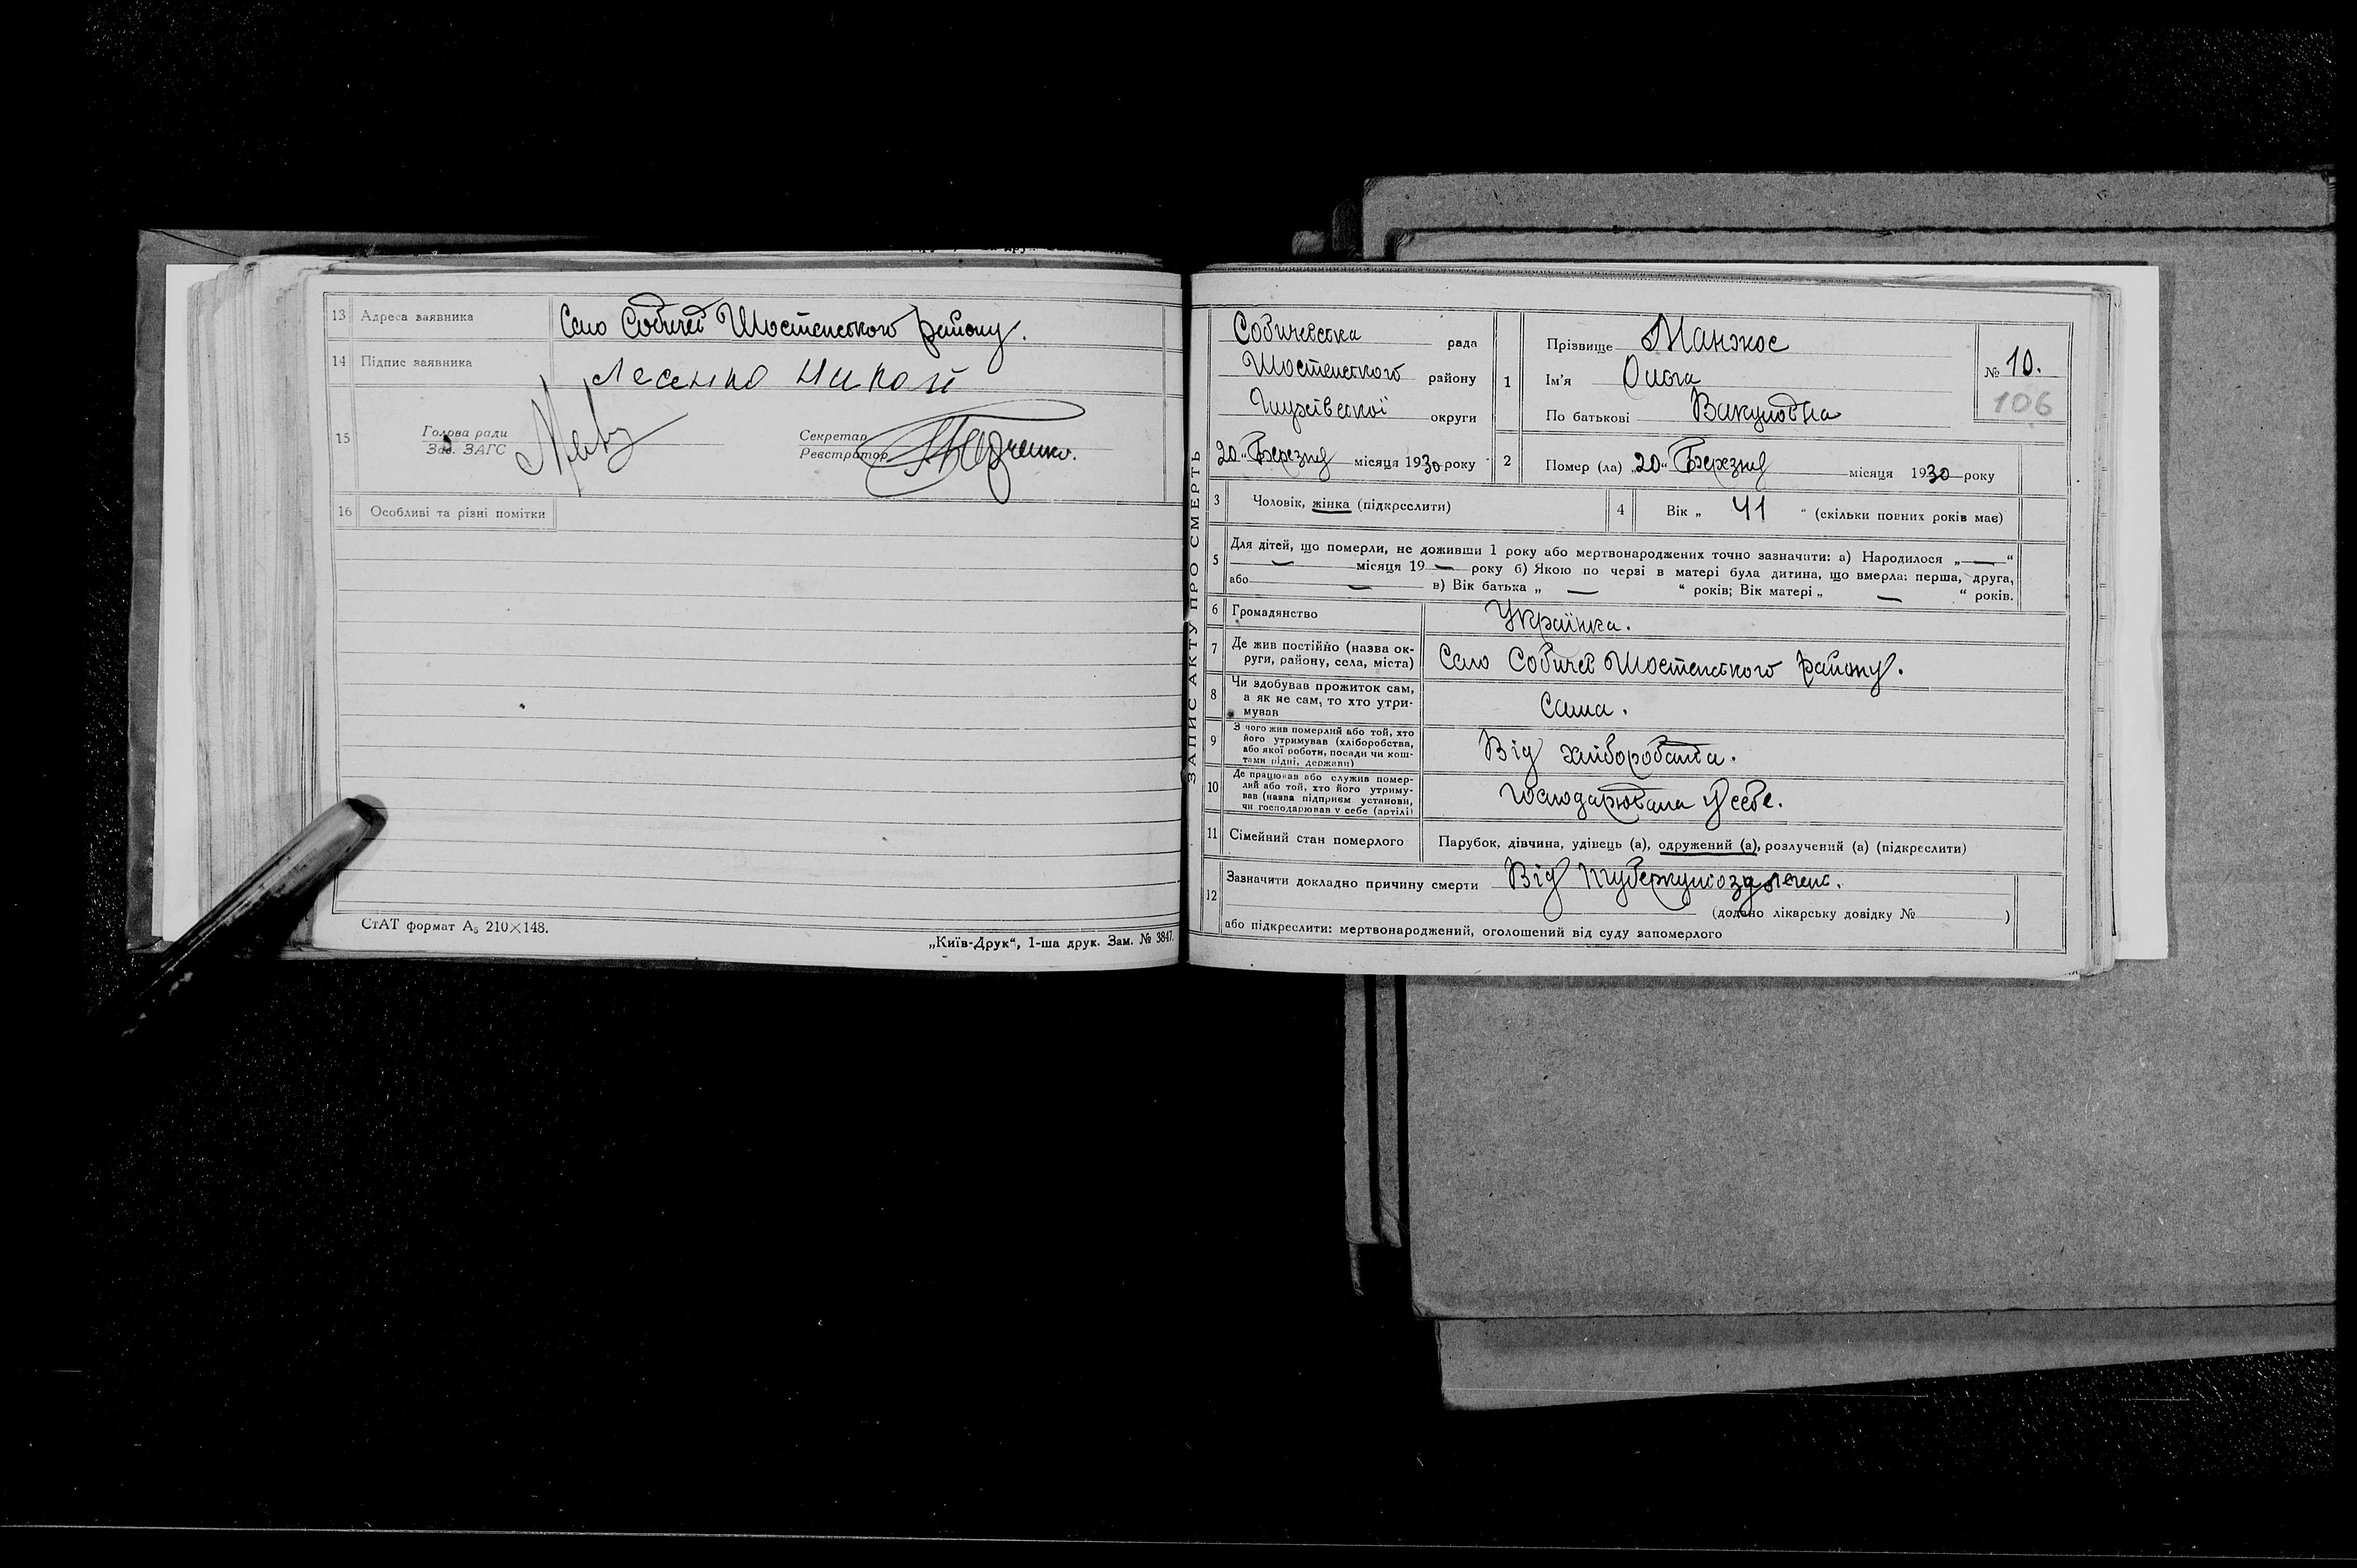 13 Адреса заявника Село Собичев Шостенського району.
14 Підпис заявника Лесенко Николй
15 Голова ради
Зав. ЗАГС
Секретар
Реєстратор
16 Особливі та різні помітки
СтАТ формат А₅ 210×148.
„Київ-Друк“, 1-ша друк. Зам. № 3847.
ЗАПИС АКТУ ПРО СМЕРТЬ
Собичевська рада
Шостенського району
Глухівської округи
20 „ Березня місяця 1930 року
1 Прізвище Манжос
Ім'я Ольга
По батькові Вакуловна
№ 10.
106
2 Помер (ла) „20“ Березня місяця 1930 року
3 Чоловік, жінка (підкреслити)
4 Вік „ 41 “ (скільки повних років має)
5 Для дітей, що померли, не доживши 1 року або мертвонароджених точно зазначити: а) Народилося „ — “
— місяця 19 — року б) Якою по черзі в матері була дитина, що вмерла: перша, друга,
або — в) Вік батька „ — “ років; Вік матері „ — “ років.
6 Громадянство Українка.
7 Де жив постійно (назва ок-
руги, району, села, міста) Село Собичев Шостенського району.
8 Чи здобував прожиток сам,
а як не сам, то хто утри-
мував Сама.
9 З чого жив померлий або той, хто
його утримував (хліборобства,
або якої роботи, посади чи кош-
тами рідні, держави) Від хліборобства.
10 Де працював або служив помер-
лий або той, хто його утриму-
вав (назва підприєм установи,
чи господарював у себе (артілі) Господарювала у себе.
11 Сімейний стан померлого Парубок, дівчина, удівець (а), одружений (а), розлучений (а) (підкреслити)
12 Зазначити докладно причину смерти Від туберкульоза легень.
(додано лікарську довідку № )
або підкреслити: мертвонароджений, оголошений від суду запомерлого